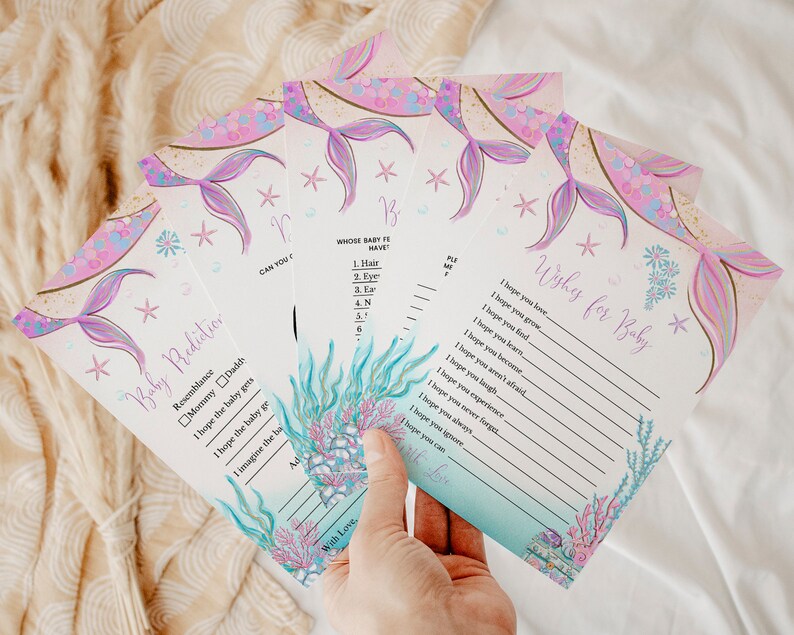 Baby Prediction
Resemblance
Mommy Daddy
I hope the baby gets
I hope the baby
I imagine the ba
Ad
With Love,
B
CAN YOU
B
WHOSE BABY FE
HAVE
1. Hair
2. Eye
3. Ea
4. N
5. S
6.
PLE
ME
Wishes for Baby
I hope you love
I hope you grow
I hope you find
I hope you learn
I hope you become
I hope you aren't afraid
I hope you laugh
I hope you experience
I hope you never forget
I hope you always
I hope you ignore
I hope you can
With Love